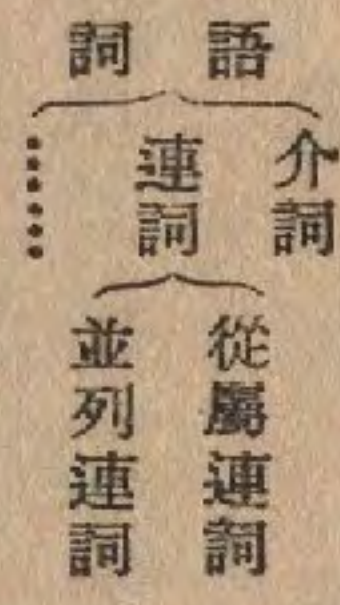 語詞
介詞
連詞
……
從屬連詞
並列連詞